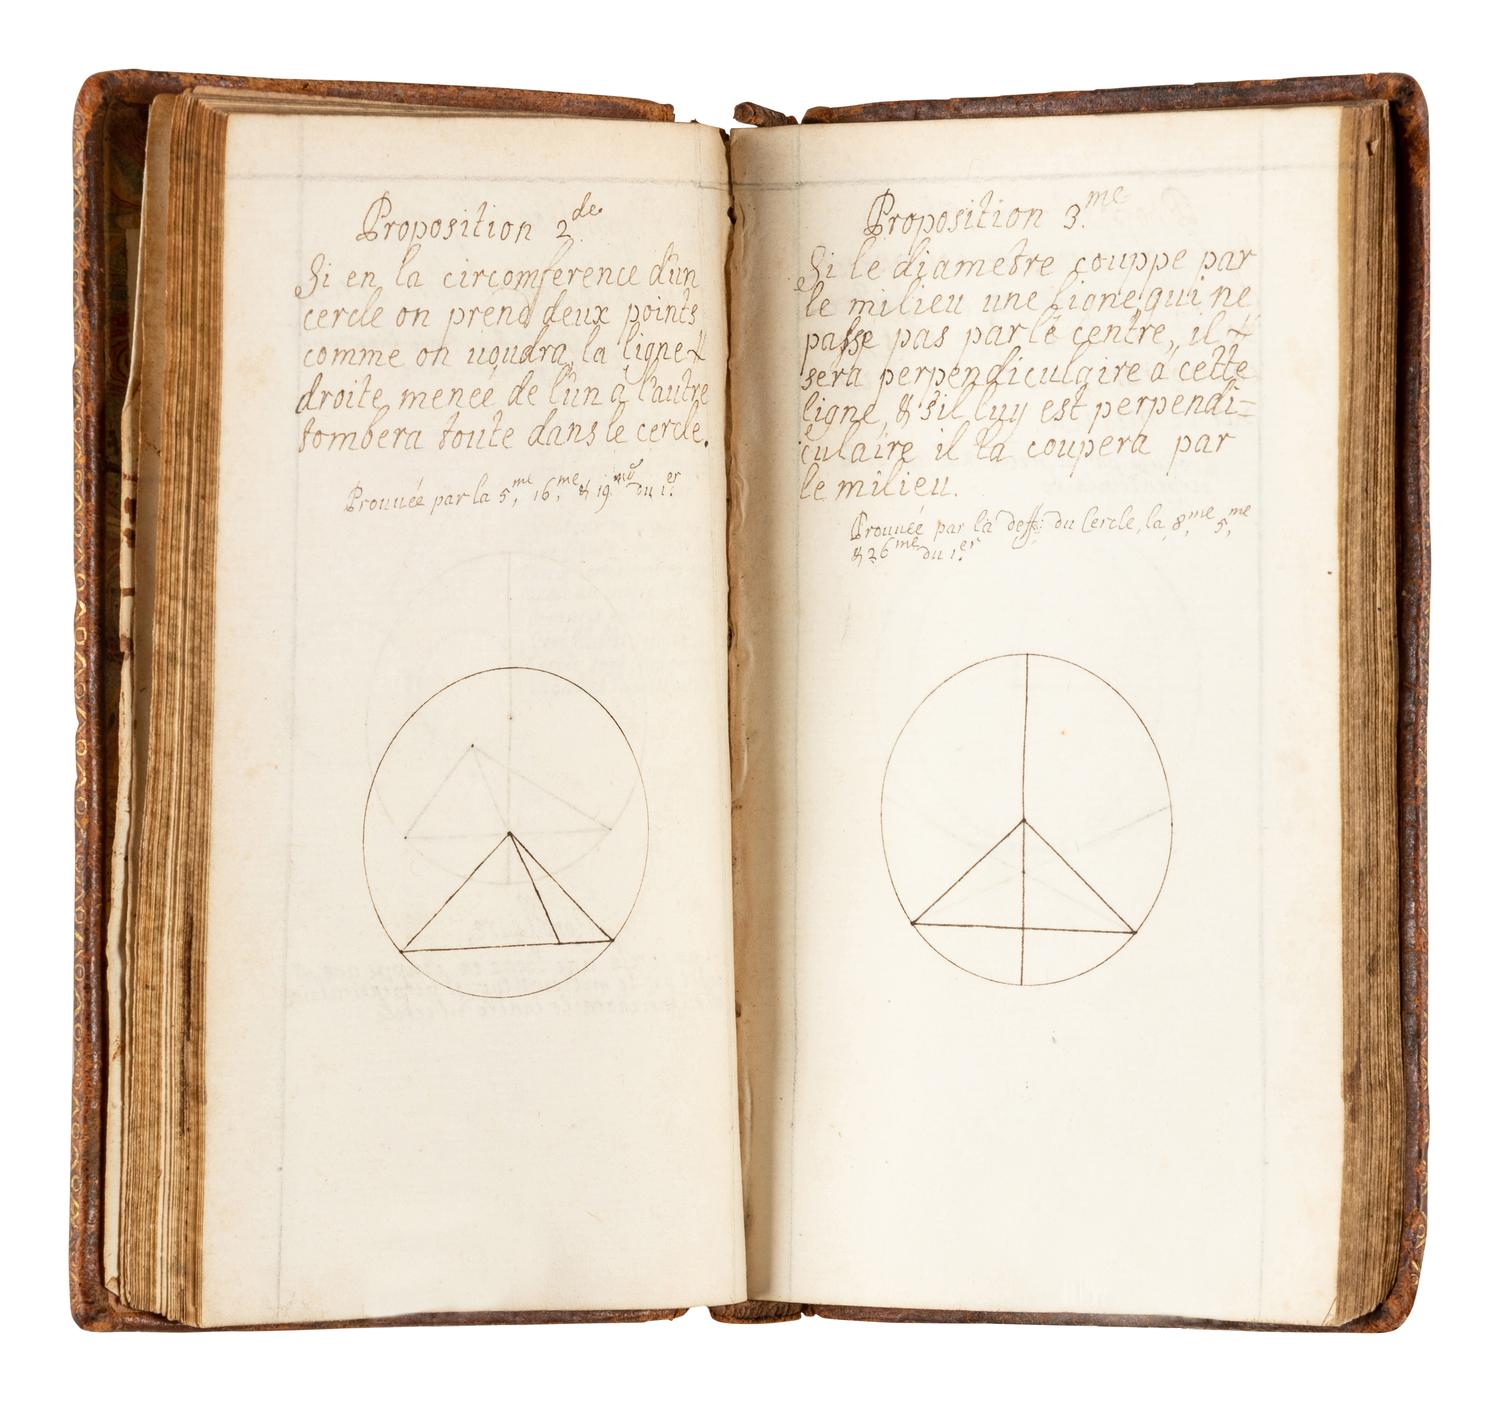 Proposition 2.de
Si en la circomference d'un
cercle on prend deux points
comme on uoudra, la ligne
droite menée de l'un a l'autre
tombera toute dans le cercle.
Prouuée par la 5.me, 16.me, & 19.me du 1.er
Proposition 3.me
Si le diametre couppe par
le milieu une ligne qui ne
passe pas par le centre, il
sera perpendiculaire a cette
ligne, & s'il luy est perpendi=
culaire il la coupera par
le milieu.
Prouuée par la deff: du Cercle, la 8.me, 5.me,
& 26.me du 1.er